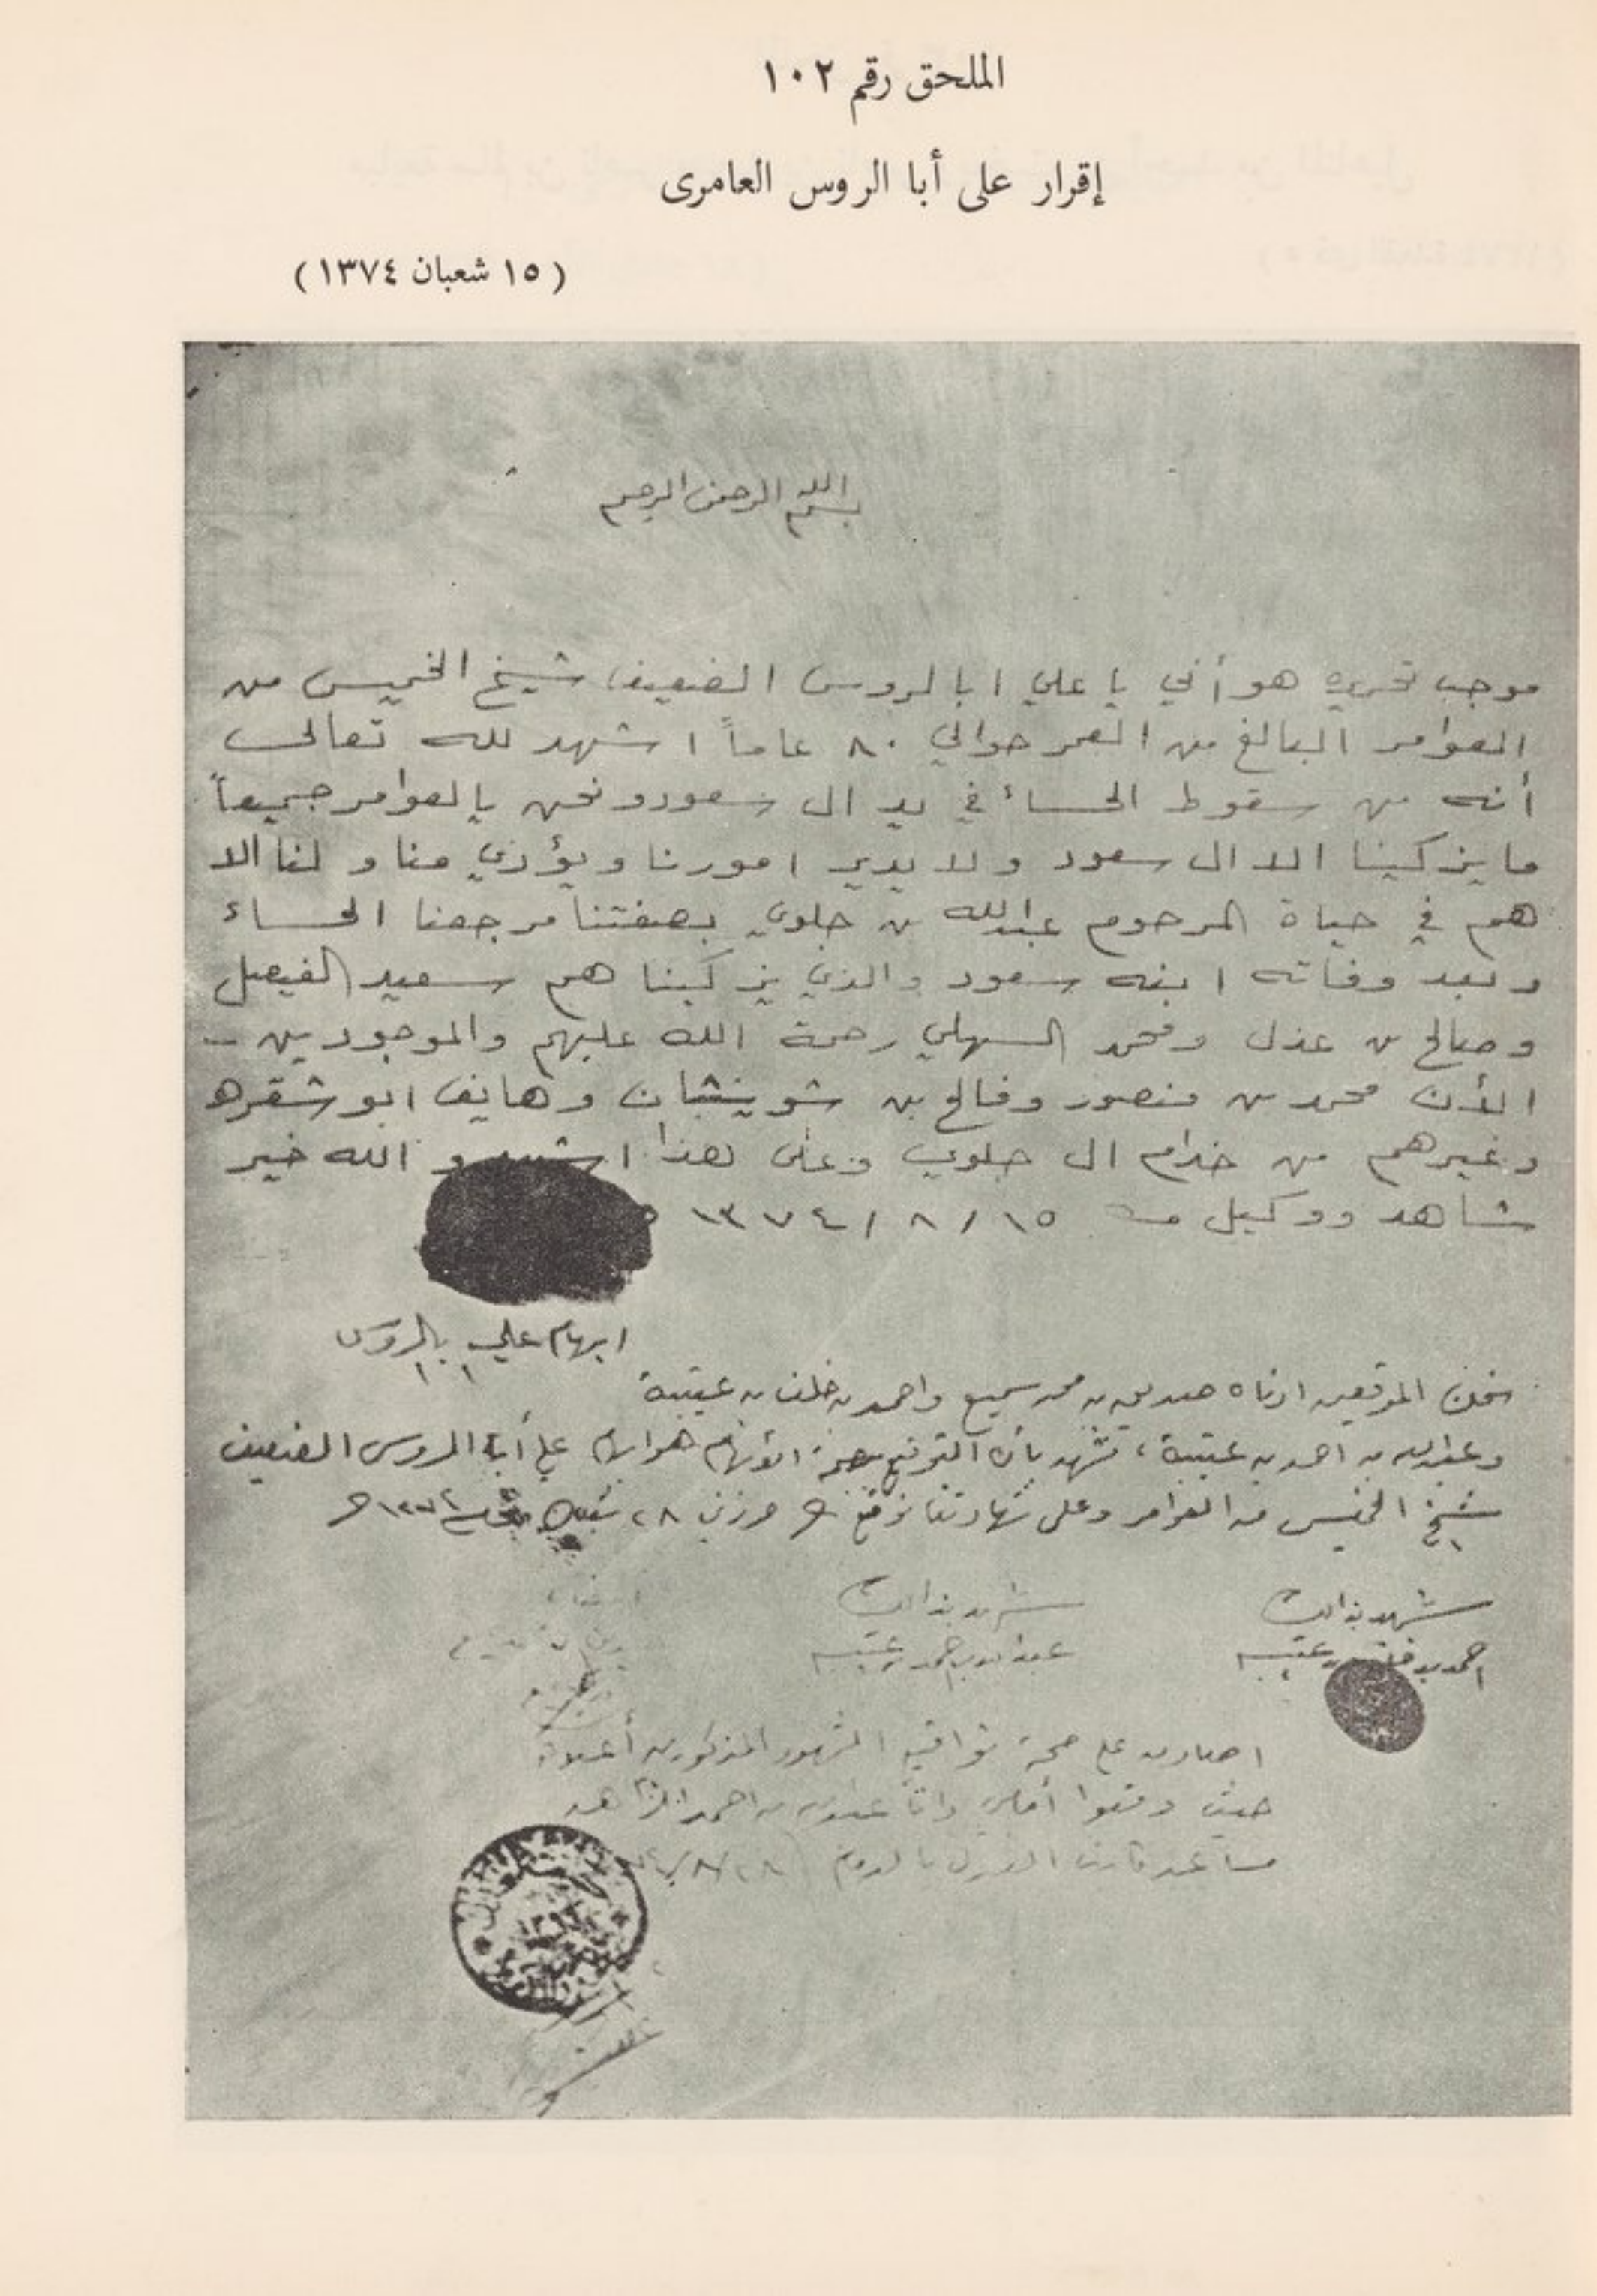 الملحق رقم ١٠٢
إقرار على أبا الروس العامرى
( ١٥ شعبان ١٣٧٤ )
بسم الله الرحمن الرحيم
موجب تحريره هو أني يا علي ابا لروس الضعيف شيخ الخميس من
العوامر البالغ من العمر حوالي ٨٠ عاماً اشهد لله تعالى
أنه من سقوط الحساء في يد ال سعود ونحن يالعوامر جميعاً
ما يزكينا الا ال سعود ولا يدير امورنا ويؤدي منا و لنا الا
هم في حياة المرحوم عبدالله بن جلوي بصفتنا مرجعنا الحساء
وبعد وفاته ابنه سعود والذي يزكينا هم سعيد الفيصل
وصالح بن عذل ومحمد السهلي رحمة الله عليهم والموجودين
الأن محمد بن منصور وفالح بن شوينشان وهايف ابو شقره
وغيرهم من خدام ال جلوي وعلى هذا اشهد و الله خير
شاهد ووكيل ١٥ / ٨ / ١٣٧٤
ابهام علي بالروس
نحن الموقعين ادناه محمد سميع واحمد بن خلف بن عتيبة
وعبدالله بن احمد بن عتيبة، نشهد بأن التوقيع الأبهام هو ابهام علي أبا الروس الضعيف
شيخ الخميس من العوامر وعلى شهادتنا نوقع ٢٨ شعبان
شهد بذالك
احمد بن عتيبه
شهد بذالك
عبدالله بن احمد بن عتيبه
اصادق على صحة تواقيع الشهود المذكورين أعلاه
حيث وقعوا أمامي وانا احمد
مساعد ٢٨/٨